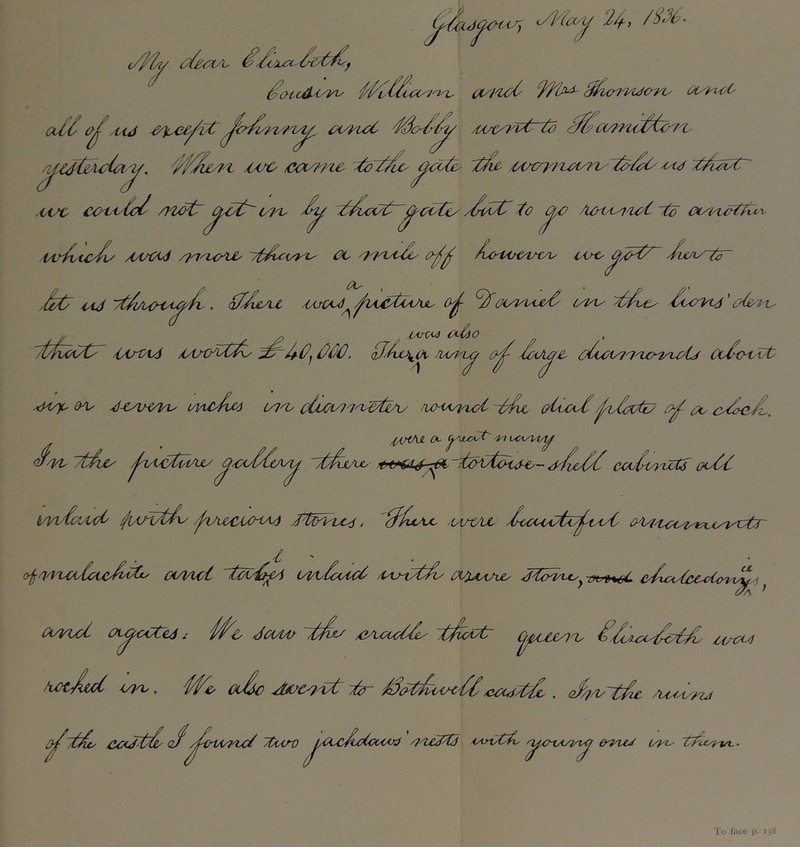 Glasgow, May 24, 1836.
My dear Elizabeth,
Cousin William and Mrs Thomson and
all of us except Johnny and Bobby went to Hamilton
yesterday. When we came to the gate the woman told us that
we could not get in by that gate but to go round to another
which was more than a mile off however we got her to
let us through. There was a picture of Daniel in the lions' den
that was worth £40,000. There was also a ring of large diamonds about
six or seven inches in diameter round the dial plate of a clock.
In the picture gallery there was a were a great many tortoise-shell cabinets all
inlaid with precious stones. There were beautiful ornaments
of malachite and tables inlaid with azure stone, and chalcedonies,
and agates: We saw the cradle that queen Elizabeth was
rocked in. We also went to Bothwell castle. In the ruins
of the castle I found two jackdaws' nests with young ones in them.
To face p. 138